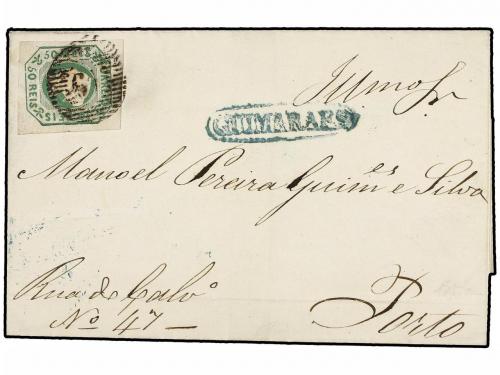 50 REIS
GUIMARAES
Illmo Sr
Manoel Pereira Guim.es e Silva
Rua de Calv.o
No 47 —
Porto